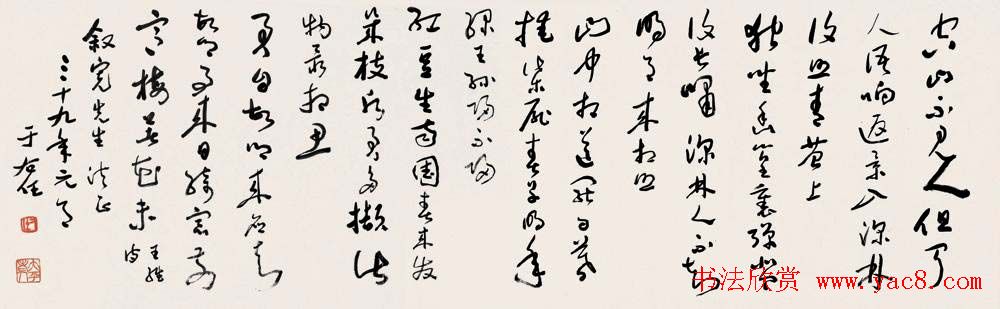 空山不見人但聞
人語响返景入深林
復照青苔上
獨坐幽篁裏彈琴
復長嘯深林人不知
明月来相照
山中相送罷日暮
掩柴扉春草明年
綠王孫歸不歸
紅豆生南國春来發
幾枝願君多擷此
物最相思
君自故鄉来應知
故鄉事来日綺窗前
寒梅著花未 王維詩
先生 法正
三十九年元月
于右任
书法欣赏 www.yac8.com